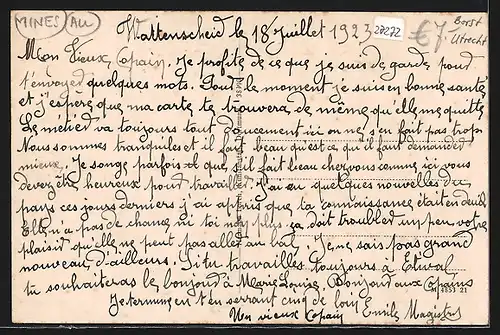 MINES AU
Wattenscheid le 18 Juillet 1923
27272
€7- Borst
Utrecht
Mon Vieux Copain. Je profite de ce que je suis de garde pour
t'envoyer quelques mots. Pour le moment je suis en bonne santé
et j'espère que ma carte te trouvera de même qu'elle me quitte
Le métier va toujours tout doucement ici on ne s'en fait pas trop
Nous sommes tranquiles et il fait beau qu'est ce qu'il faut demander
mieux. Je songe parfois que s'il fait beau chez vous comme ici vous
devez être heureux pour travailler. J'ai eu quelques nouvelles du
pays ces jours derniers j'ai appris que ta connaissance était en deuil
Elle n'a pas de chance ni toi non plus ça doit troubler un peu votre
plaisir qu'elle ne peut pas aller au bal. Je ne sais pas grand
nouveau d'ailleurs. Si tu travailles toujours à Etival
tu souhaiteras le bonjour à Marie Louise. Bonjour aux Copains
Je termine en t'en serrant cinq de loin Emile
Un vieux Copain